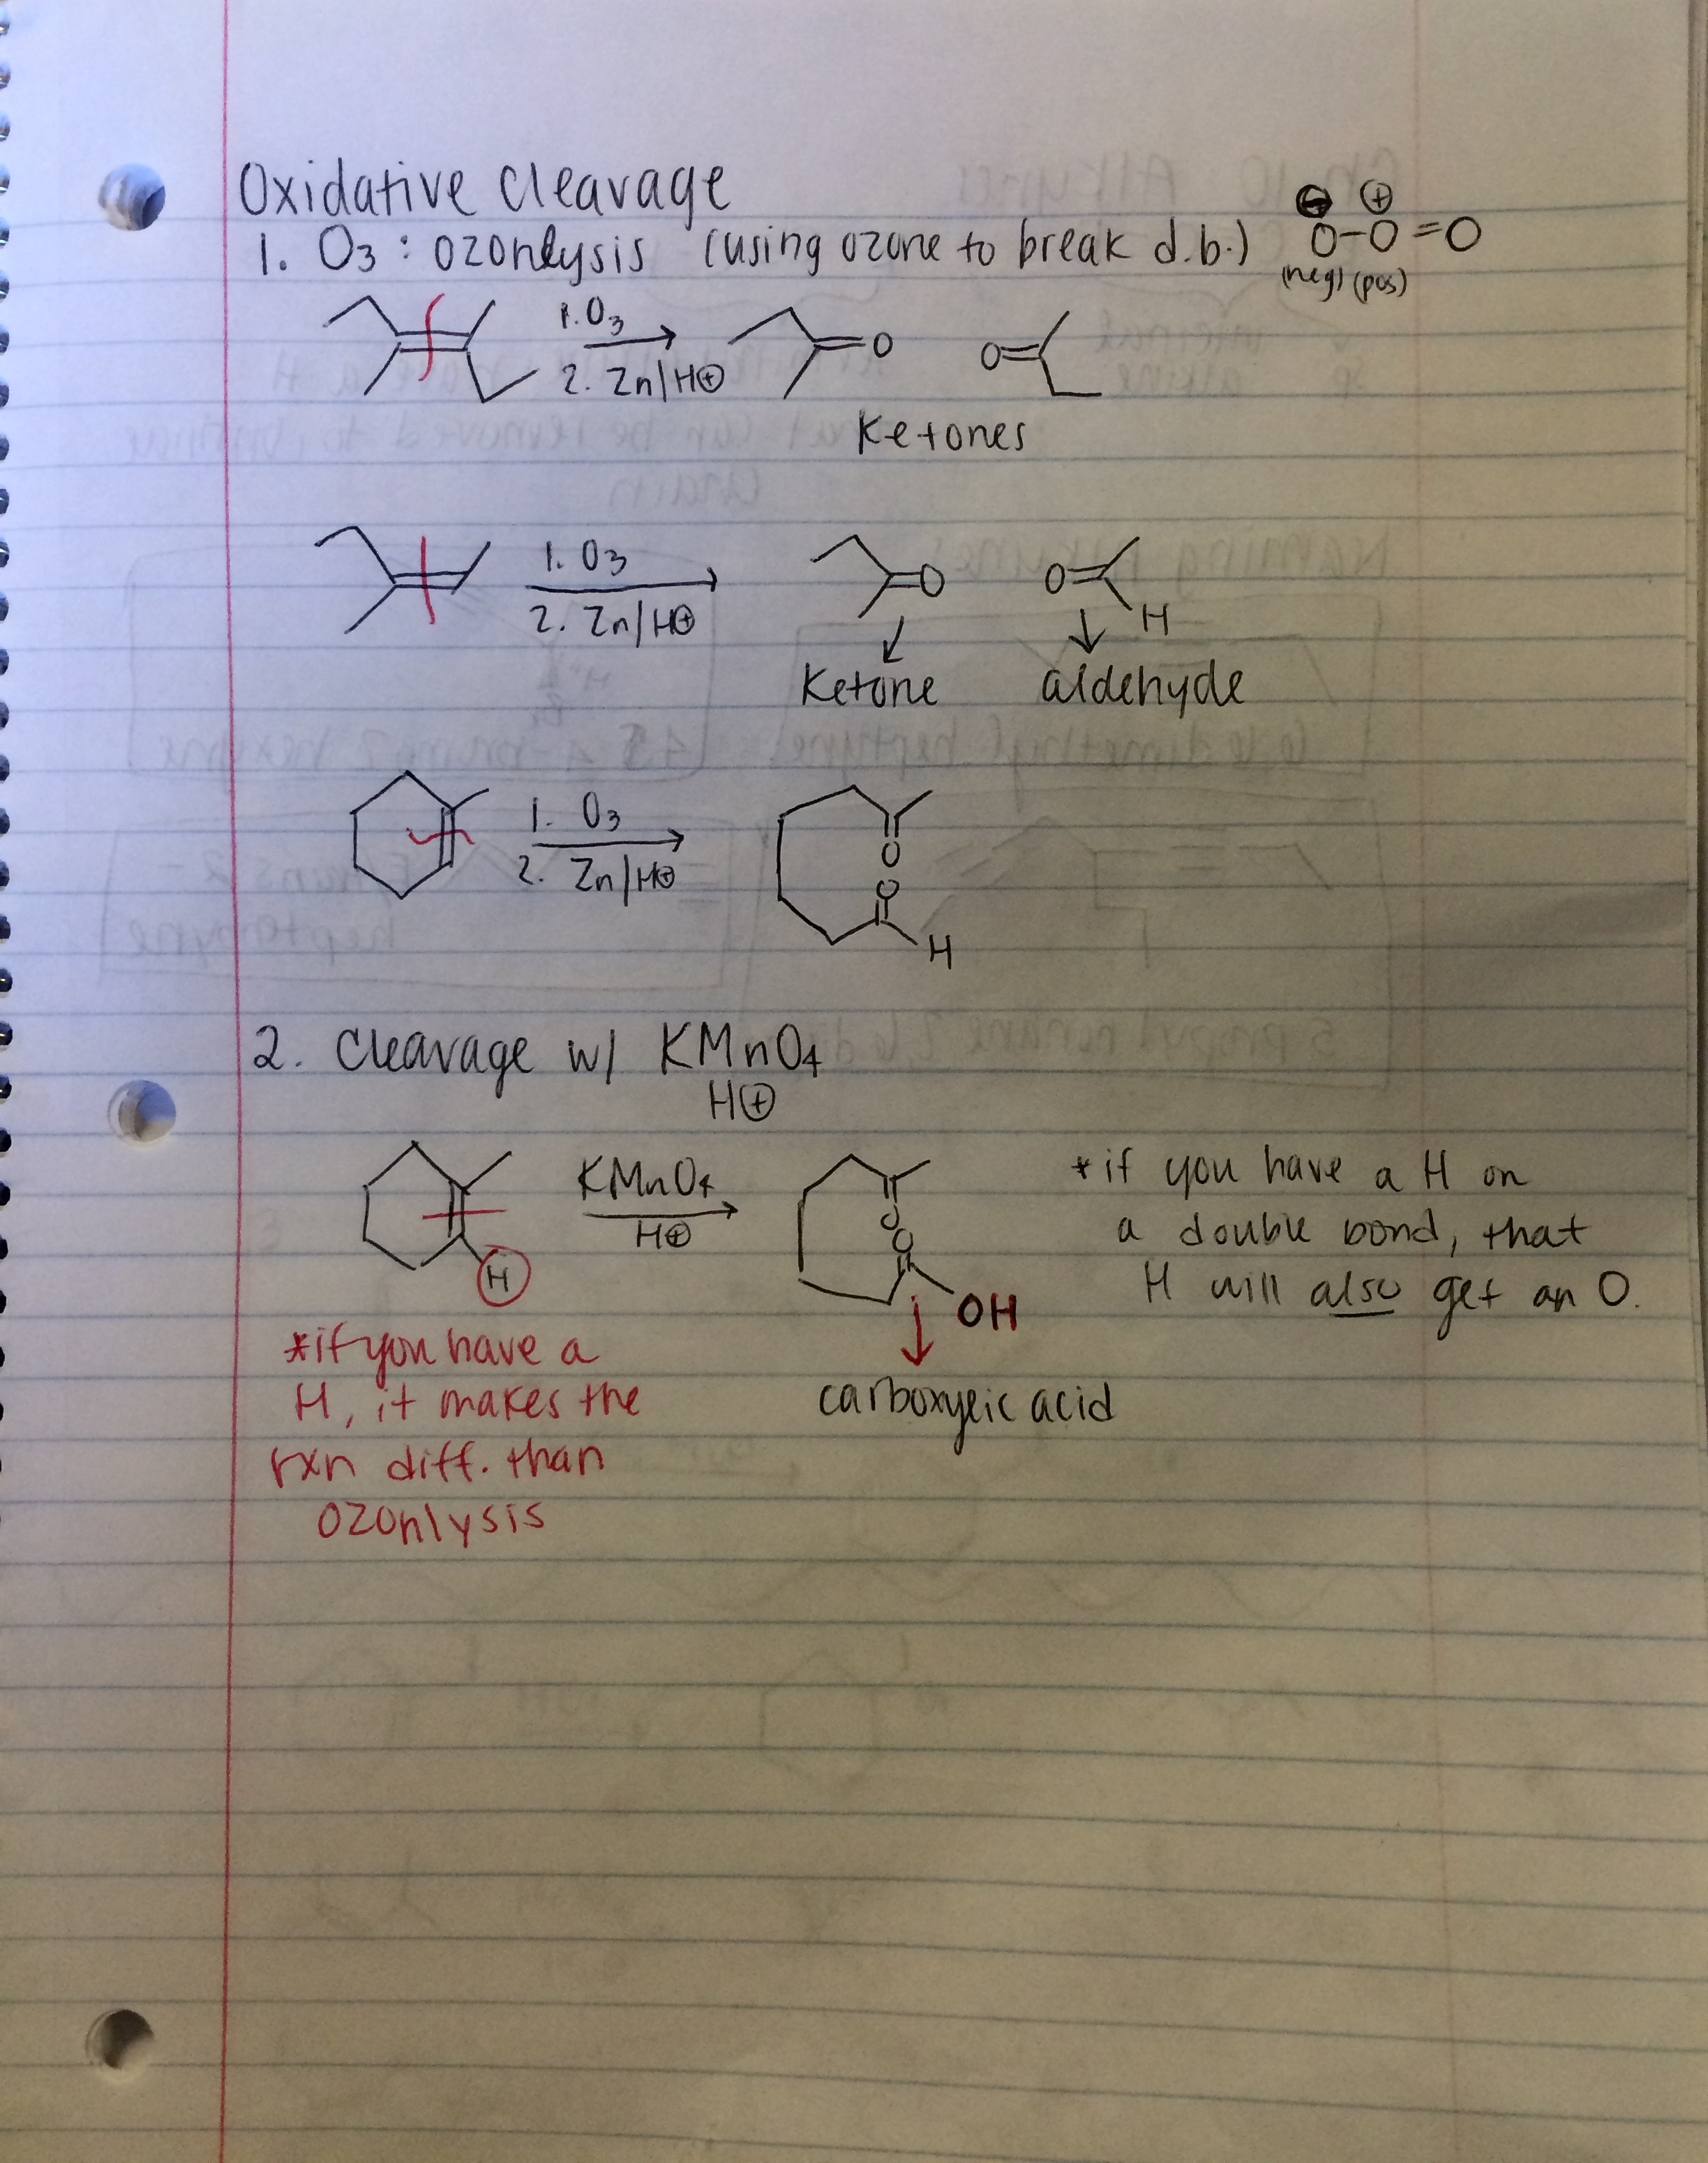 Oxidative Cleavage
⊖ ⊕
1. O3 : ozonlysis (using ozone to break d.b.) O-O=O
(neg) (pos)
1. O3
2. Zn/H⊕
O O
Ketones
1. O3
2. Zn/H⊕
O O
H
Ketone aldehyde
1. O3
2. Zn/H⊕
O
O
H
2. Cleavage w/ KMnO4
H⊕
KMnO4
H⊕
H
O
O
OH
carboxylic acid
*if you have a H on
a double bond, that
H will also get an O.
*if you have a
H, it makes the
rxn diff. than
ozonlysis